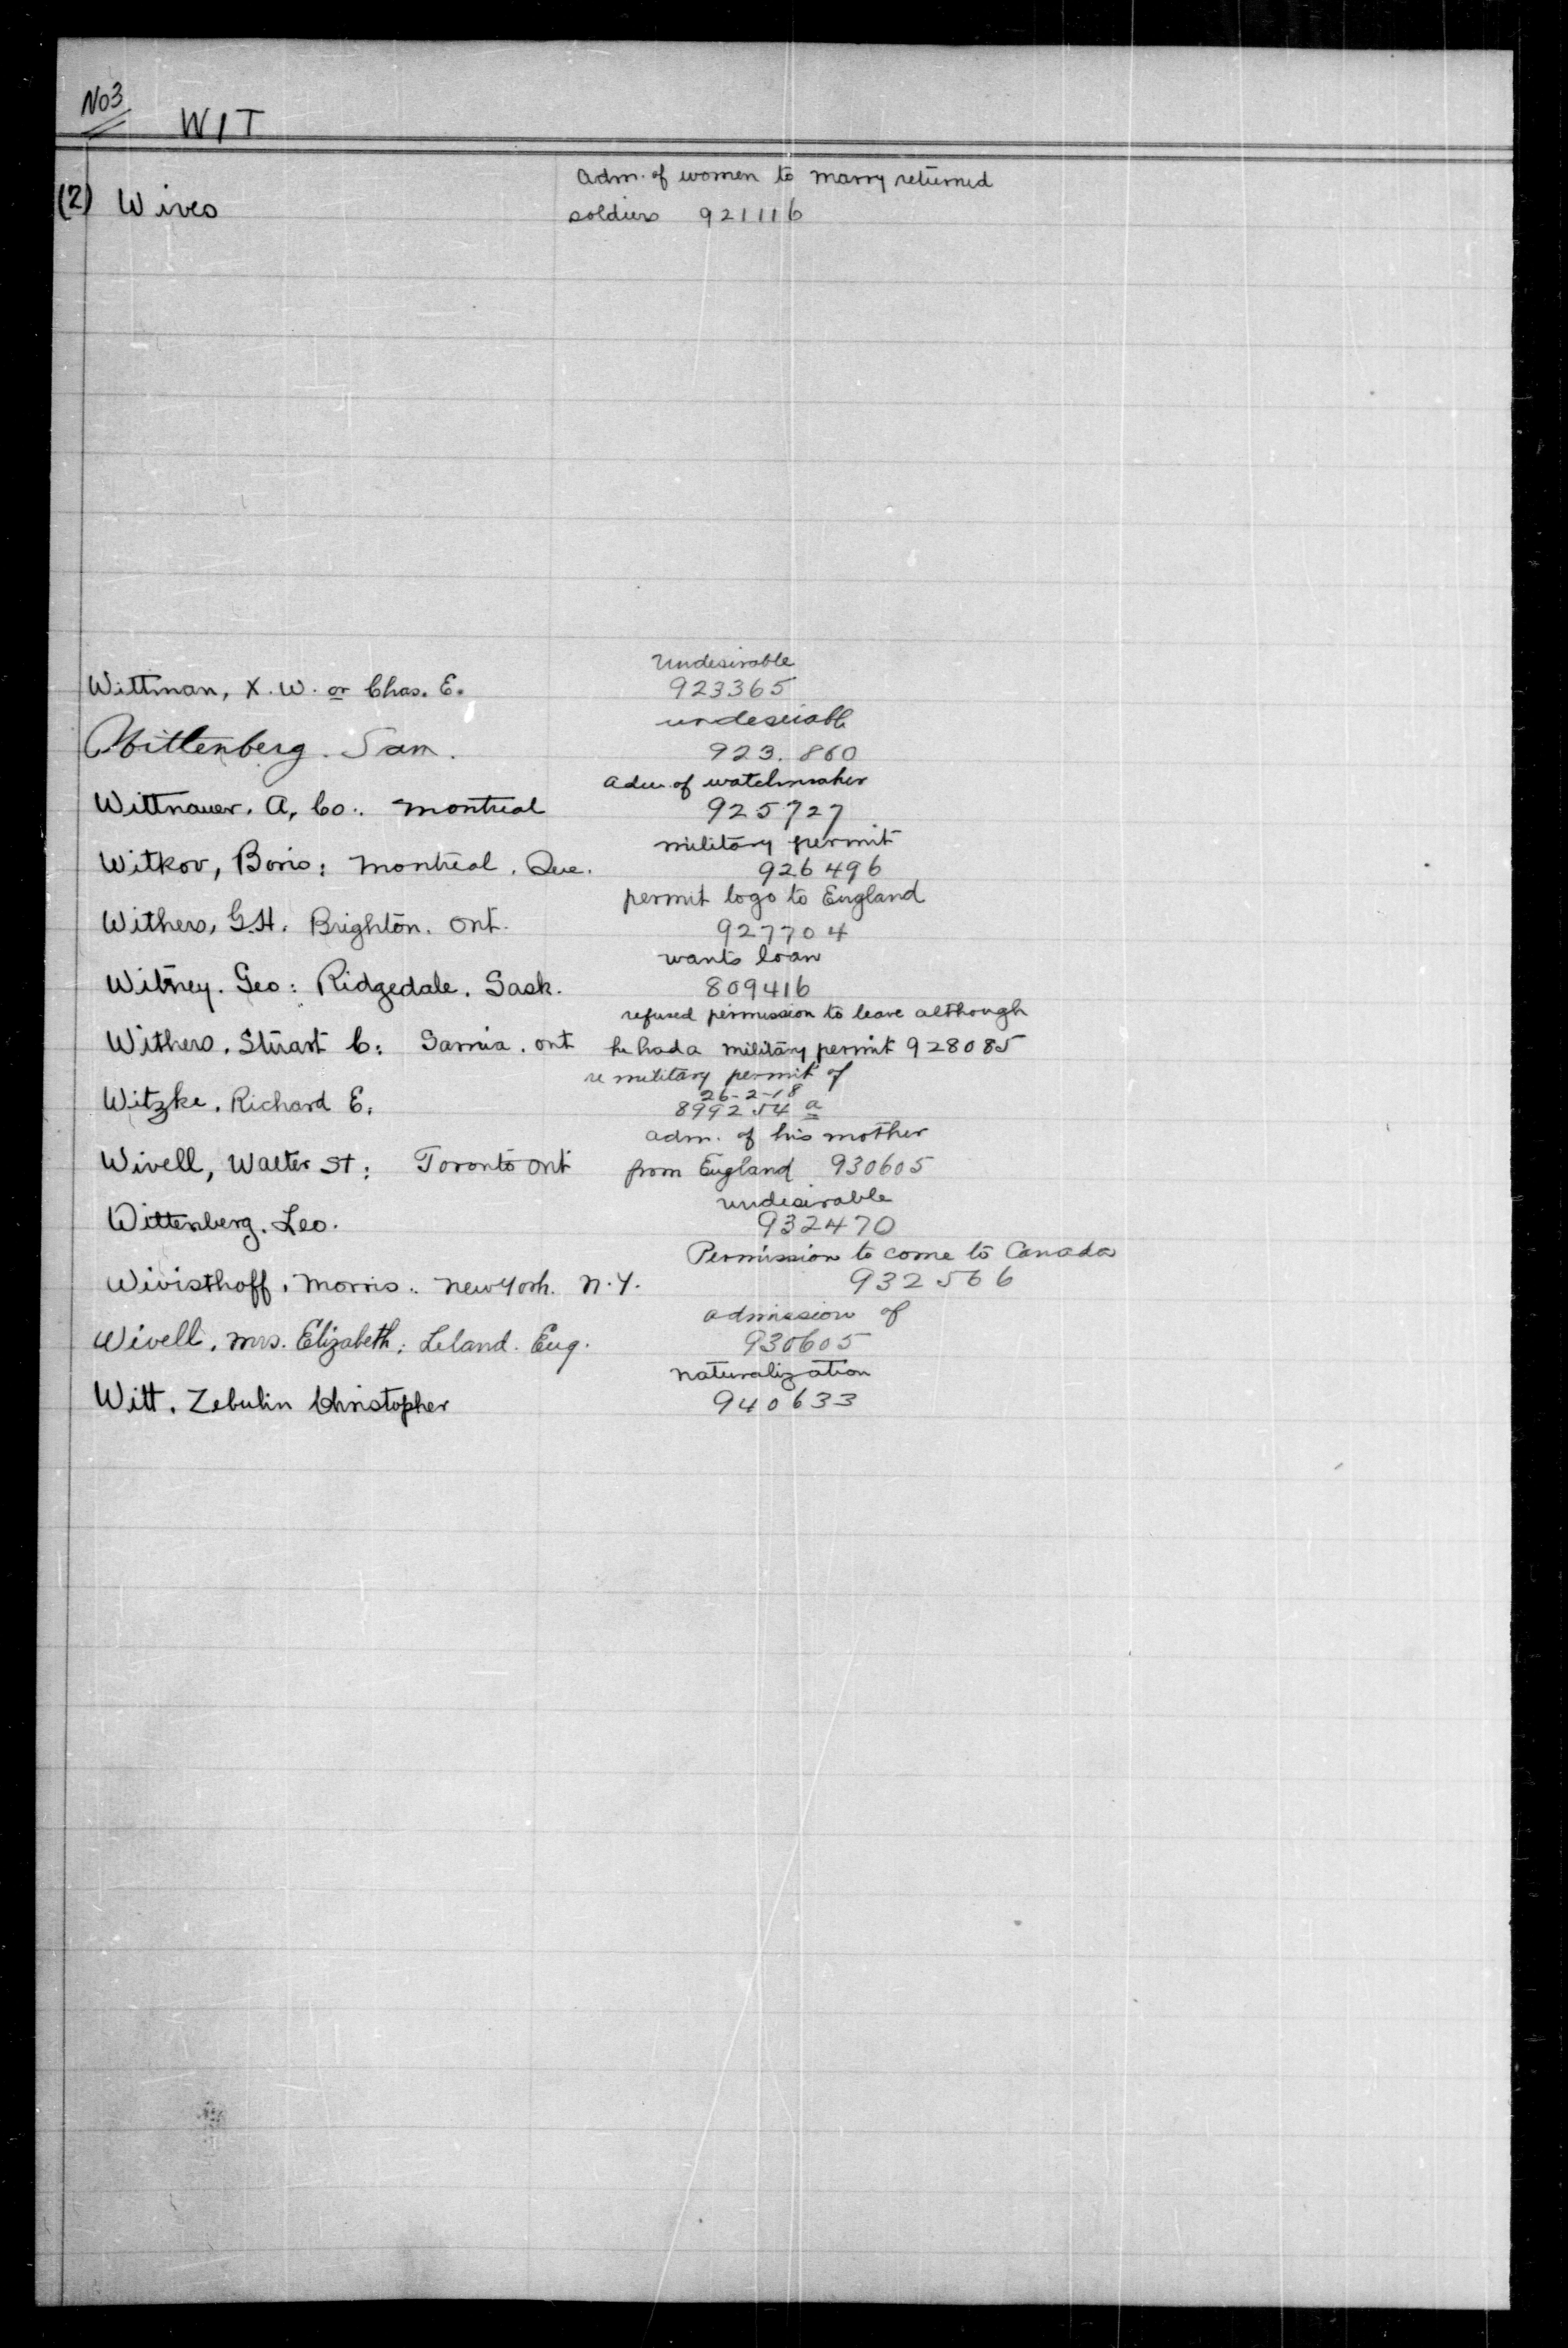 No 3
WIT
adm. of women to marry returned
(2) Wives
soldiers 921116
Undesirable
Wittman, X. W. or Chas. E.
923365
undesirable
Wittenberg. Sam.
923.860
adm. of watchmaker
Wittnauer. A, Co. : Montreal
925727
military permit
Witkov, Boris : Montreal. Que.
926496
permit to go to England
Withers, G.H. Brighton. Ont.
927704
wants loan
Witney. Geo : Ridgedale. Sask.
809416
refused permission to leave although
Withers. Stuart C : Sarnia. Ont
he had a military permit 928085
re military permit of
26-2-18
Witzke. Richard E :
899254 a
adm. of his mother
Wivell, Walter St : Toronto Ont
from England 930605
undesirable
Wittenberg. Leo.
932470
Permission to come to Canada
Wivisthoff. Morris : New York. N.Y.
932566
admission of
Wivell. Mrs. Elizabeth : Leland. Eng.
930605
naturalization
Witt. Zebulin Christopher
940633